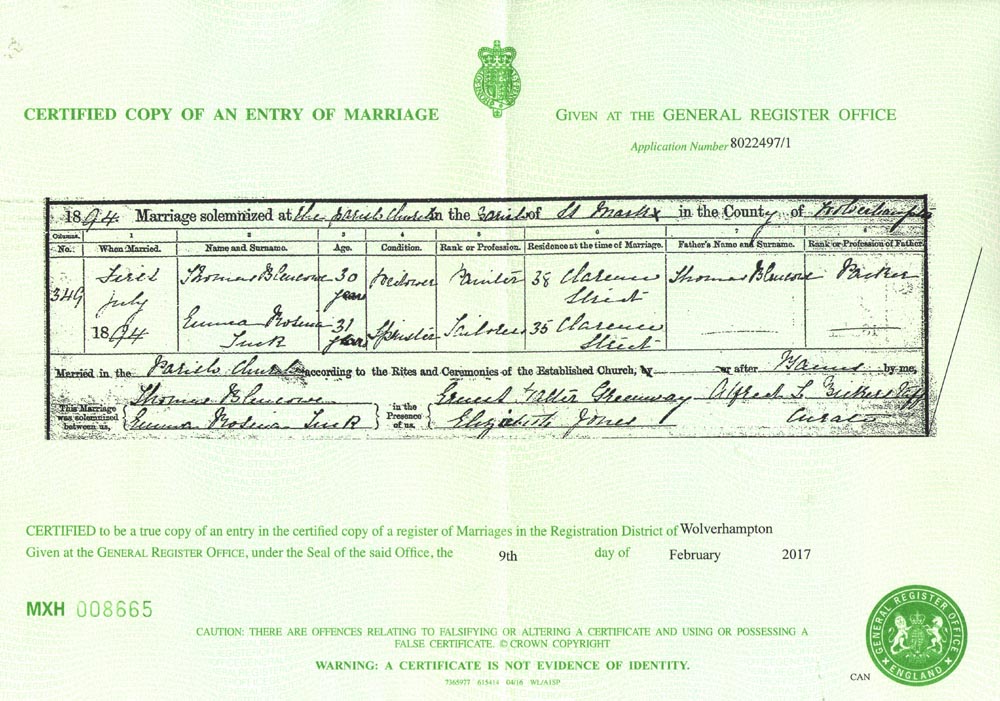 CERTIFIED COPY OF AN ENTRY OF MARRIAGE
GIVEN AT THE GENERAL REGISTER OFFICE
Application Number 8022497/1
1894 Marriage solemnized at the Parish Church in the Parish of St Marks in the County of Wolverhampton
Columns. 1 2 3 4 5 6 7 8
No. When Married. Name and Surname. Age. Condition. Rank or Profession. Residence at the time of Marriage. Father's Name and Surname. Rank or Profession of Father.
349 First July 1894
Thomas Blencowe 30 years Widower Painter 38 Clarence Street Thomas Blencowe
Emma Rosina Tuck 31 years Spinster Tailoress 35 Clarence Street
Married in the Parish Church according to the Rites and Ceremonies of the Established Church, by or after Banns by me,
This Marriage was solemnized between us, Thomas Blencowe
Emma Rosina Tuck
in the Presence of us, Ernest Walter Greenway
Elizabeth Jones
Alfred L
Curate
CERTIFIED to be a true copy of an entry in the certified copy of a register of Marriages in the Registration District of Wolverhampton
Given at the GENERAL REGISTER OFFICE, under the Seal of the said Office, the 9th day of February 2017
MXH 008665
CAUTION: THERE ARE OFFENCES RELATING TO FALSIFYING OR ALTERING A CERTIFICATE AND USING OR POSSESSING A
FALSE CERTIFICATE. © CROWN COPYRIGHT
WARNING: A CERTIFICATE IS NOT EVIDENCE OF IDENTITY.
7365977 615414 04/16 WL/A1SP
CAN
GENERAL REGISTER OFFICE
ENGLAND